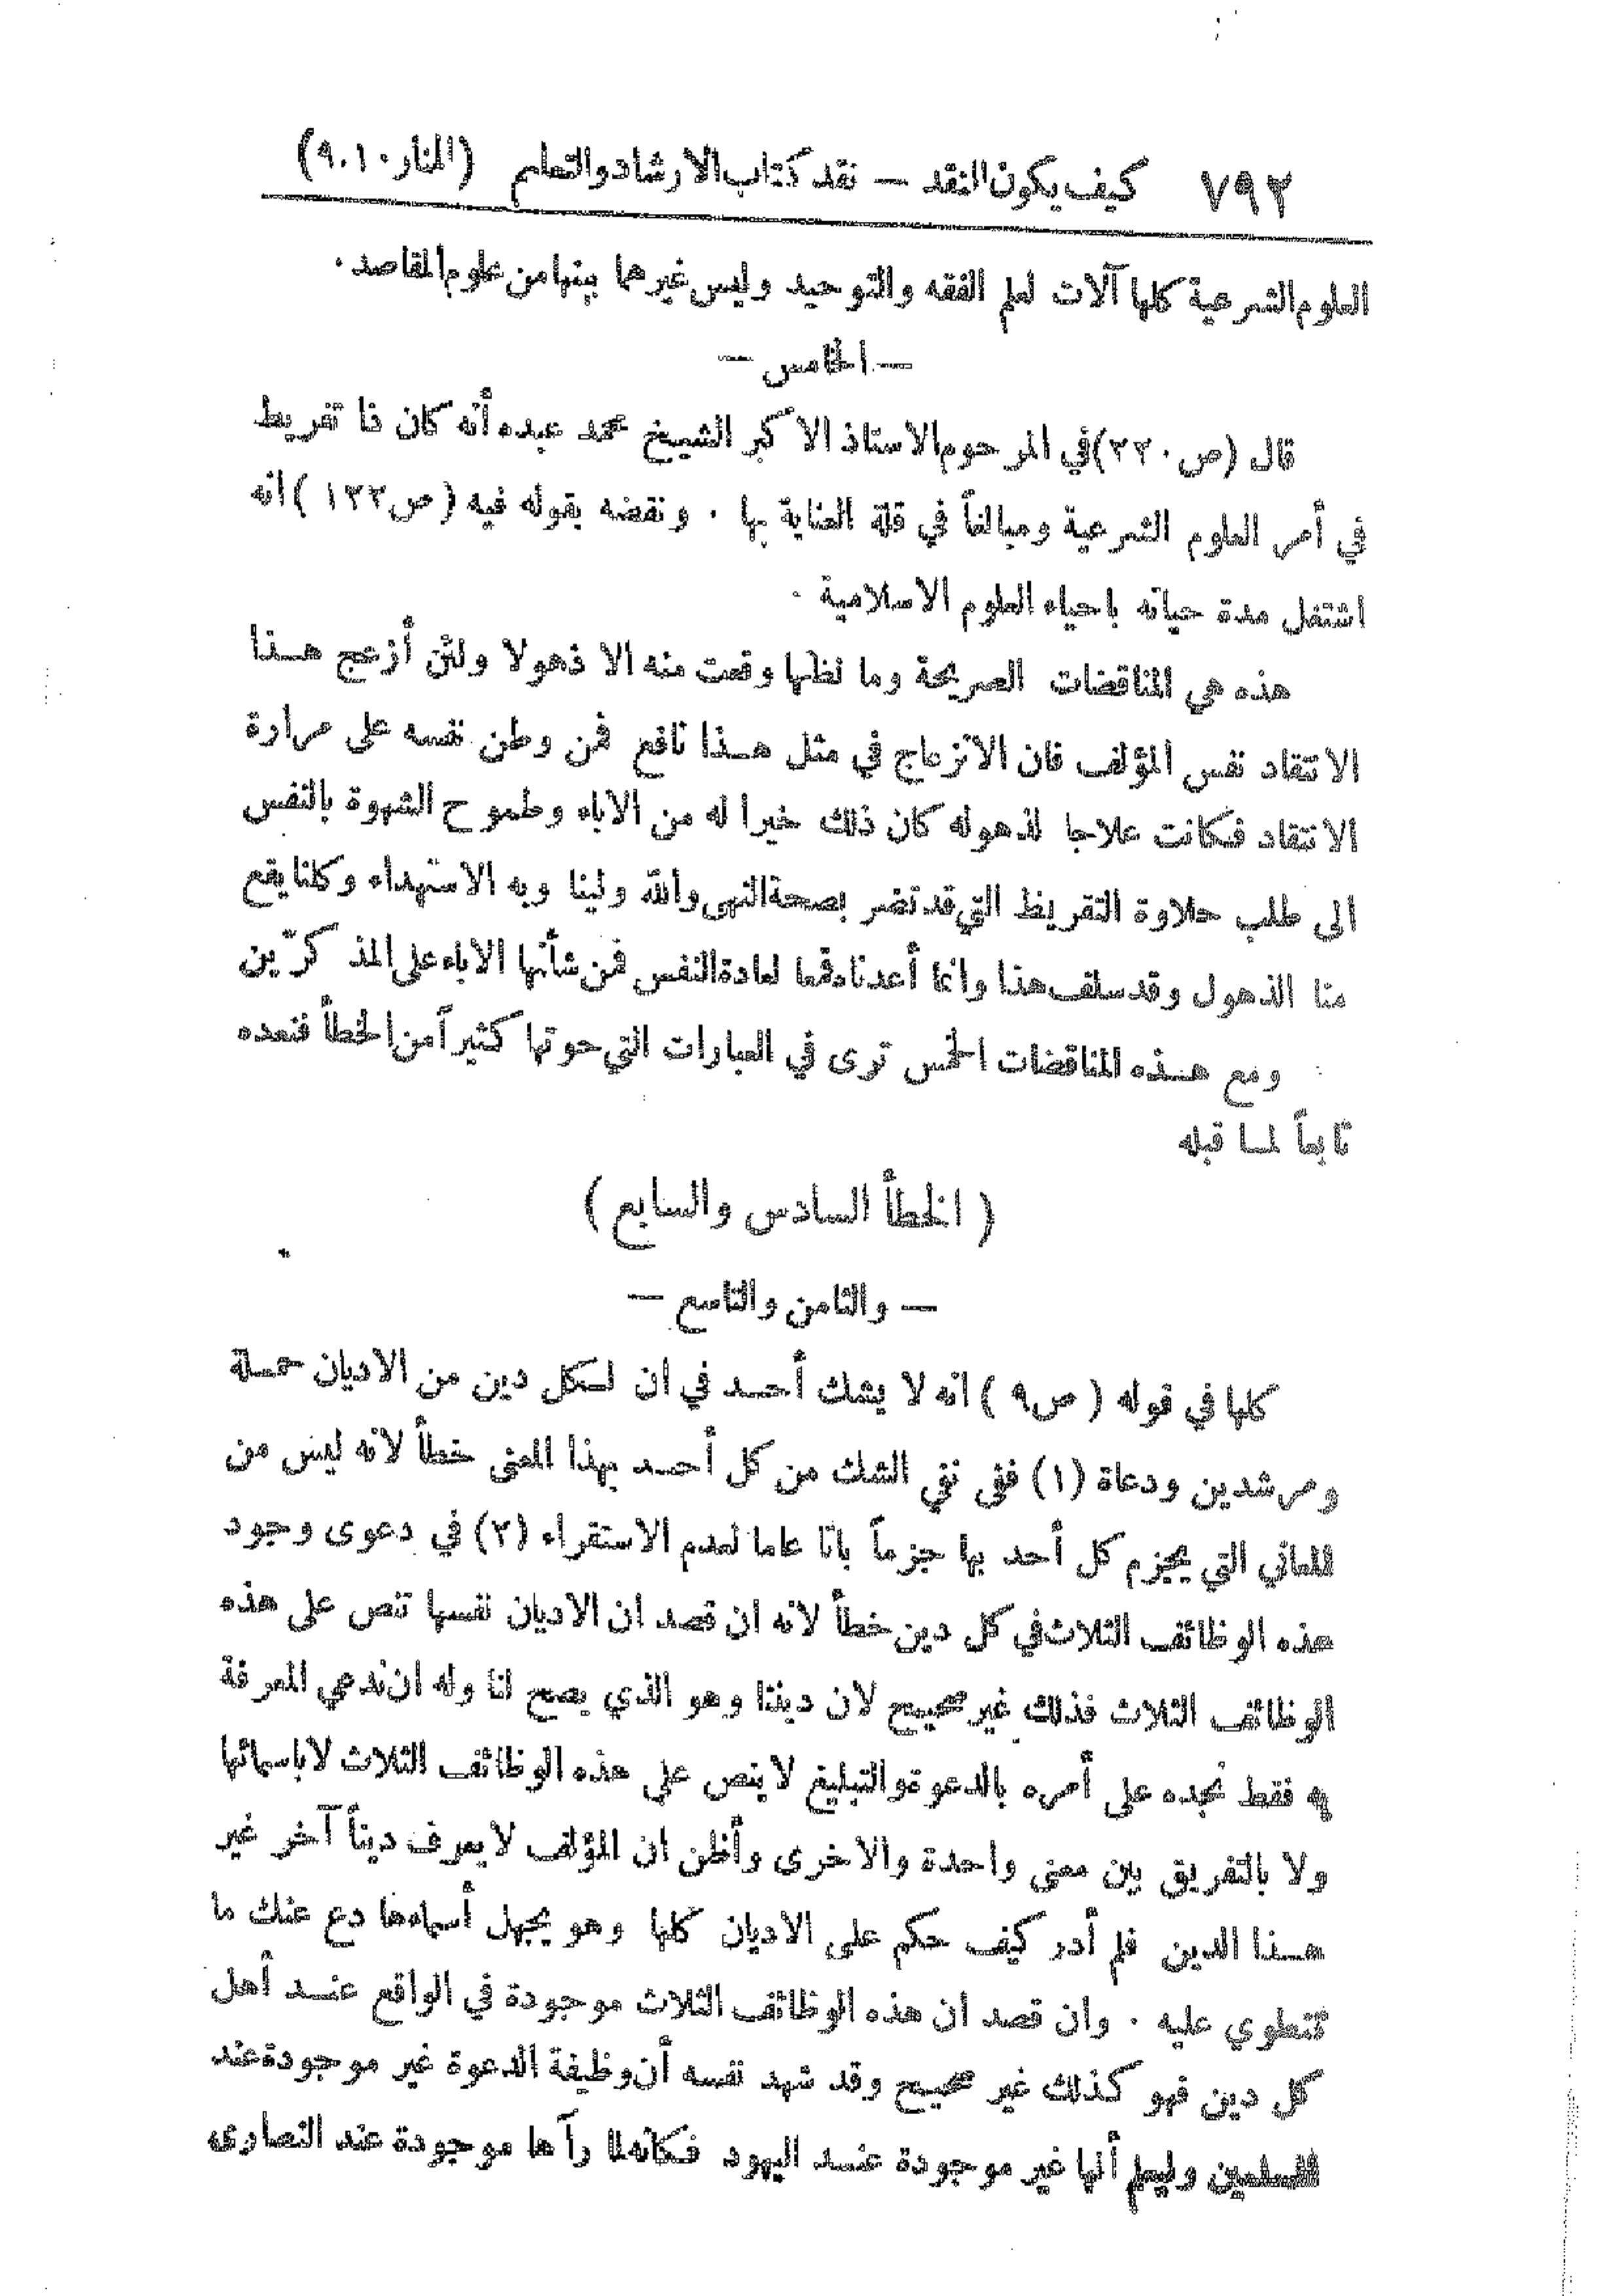 ٧٩٢ كيف يكون النقد — نقد كتاب الارشاد والتعليم (المنار ١٠ . ٩)
العلوم الشرعية كلها آلات لعلم الفقه والتوحيد وليس غيرها بينها من علوم المقاصد .
— الخامس —
قال (ص ٢٢٠) في المرحوم الاستاذ الاكبر الشيخ محمد عبده أنه كان ذا تفريط
في أمر العلوم الشرعية ومبالغاً في قلة العناية بها . ونقضه بقوله فيه (ص ١٢٢) انه
اشتغل مدة حياته باحياء العلوم الاسلامية .
هذه هي المناقضات الصريحة وما نظنها وقعت منه الا ذهولا ولئن أزعج هـذا
الانتقاد نفس المؤلف فان الانزعاج في مثل هـذا نافع فمن وطن نفسه على مرارة
الانتقاد فكانت علاجا لذهوله كان ذلك خيرا له من الاباء وطموح الشهوة بالنفس
الى طلب حلاوة التقريظ التي قد تضر بصحة النهى والله ولينا وبه الاستهداء وكلنا يقع
منا الذهول وقد سلف هذا وانما أعدناه دفعا لعادة النفس فمن شأنها الاباء على المذكرّين
ومع هـذه المناقضات الخمس ترى في العبارات التي حوتها كثيراً من الخطأ فنعده
تابعاً لمـا قبله
( الخطأ السادس والسابع )
— والثامن والتاسع —
كلها في قوله ( ص ٩ ) انه لا يشك أحـد في ان لـكل دين من الاديان حمـلة
ومرشدين ودعاة (١) ففي نفي الشك من كل أحـد بهذا المعنى خطأ لانه ليس من
المعاني التي يجزم كل أحد بها جزماً باتا عاما لعدم الاستقراء (٢) في دعوى وجود
هذه الوظائف الثلاث في كل دين خطأ لانه ان قصد ان الاديان نفسها تنص على هذه
الوظائف الثلاث فذلك غير صحيح لان ديننا وهو الذي يصح لنا وله ان ندعي المعرفة
به فقط نجده على أمره بالدعوة والتبليغ لا ينص على هذه الوظائف الثلاث لا باسمائها
ولا بالتفريق بين معنى واحدة والاخرى وأظن ان المؤلف لا يعرف ديناً آخر غير
هـذا الدين فلم أدر كيف حكم على الاديان كلها وهو يجهل أسماءها دع عنك ما
تنطوي عليه . وان قصد أن هذه الوظائف الثلاث موجودة في الواقع عنـد أهل
كل دين فهو كذلك غير صحيح وقد شهد نفسه أن وظيفة الدعوة غير موجودة عند
المسلمين وليعلم أنها غير موجودة عنـد اليهود فـكأنه لما رآها موجودة عند النصارى